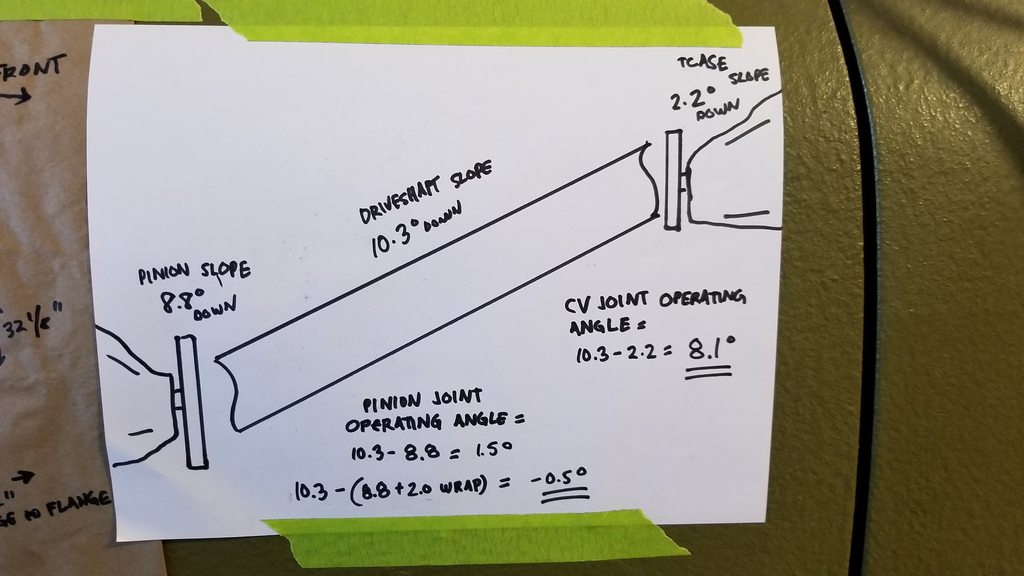 FRONT
TCASE
SLOPE
2.2° DOWN
DRIVESHAFT SLOPE
10.3° DOWN
PINION SLOPE
8.8° DOWN
32 1/8"
CV JOINT OPERATING
ANGLE =
10.3 - 2.2 = 8.1°
PINION JOINT
OPERATING ANGLE =
10.3 - 8.8 = 1.5°
10.3 - (8.8 + 2.0 WRAP) = -0.5°
TO FLANGE